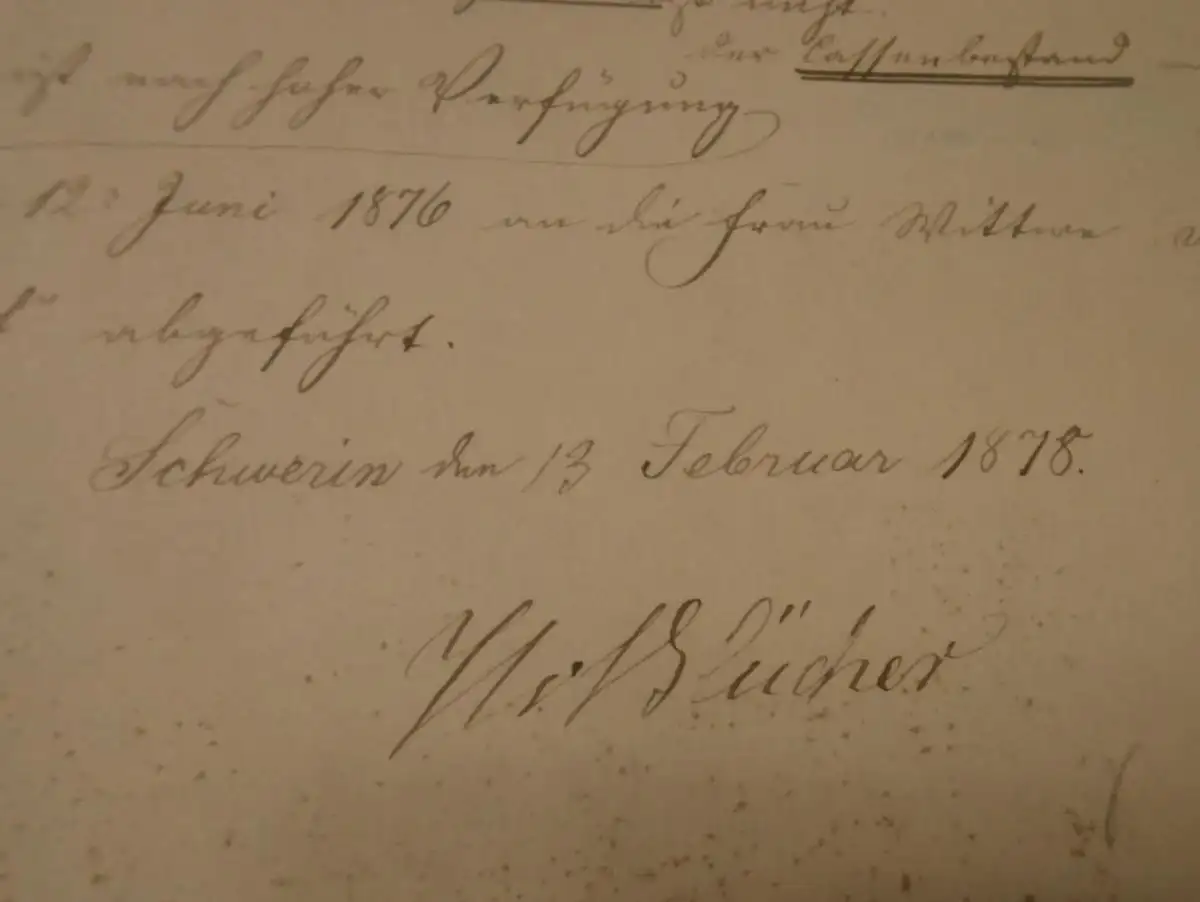 nicht.
der Cassenbestand —
ist nach hoher Verfügung
12t Juni 1876 an die Frau Wittwe
abgeführt.
Schwerin den 13 Februar 1878.
v. Blücher